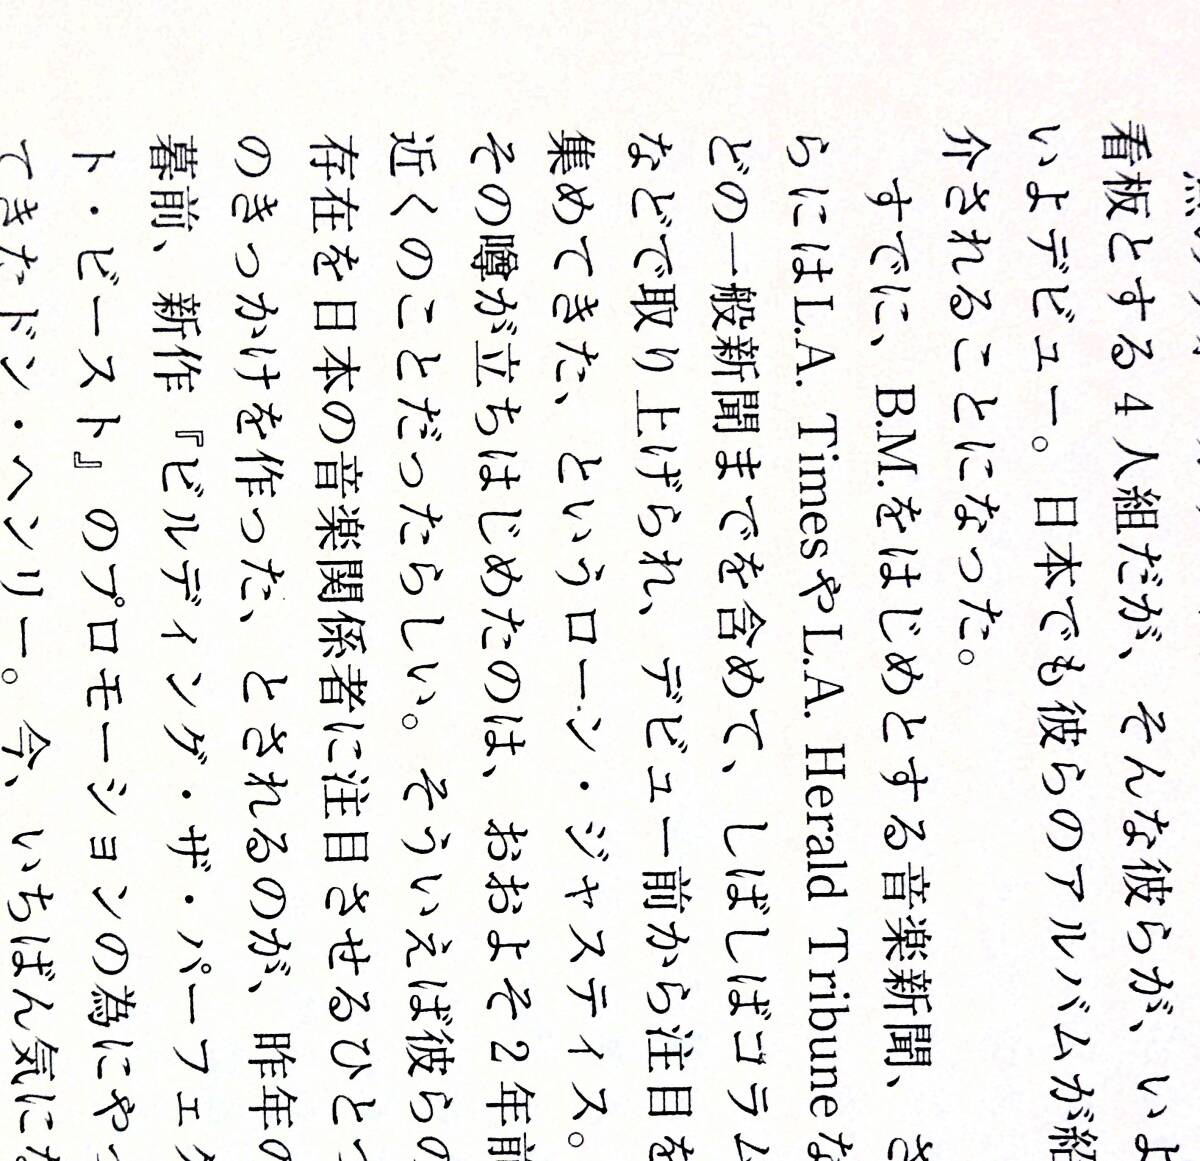 看板とする4人組だが、そんな彼らが、いよ
いよデビュー。日本でも彼らのアルバムが紹
介されることになった。
すでに、B.M.をはじめとする音楽新聞、さ
らにはL.A. TimesやL.A. Herald Tribuneな
どの一般新聞までを含めて、しばしばコラム
などで取り上げられ、デビュー前から注目を
集めてきた、というローン・ジャスティス。
その噂が立ちはじめたのは、おおよそ2年前
近くのことだったらしい。そういえば彼らの
存在を日本の音楽関係者に注目させるひとつ
のきっかけを作った、とされるのが、昨年の
暮前、新作『ビルディング・ザ・パーフェク
ト・ビースト』のプロモーションの為にやっ
てきたドン・ヘンリー。今、いちばん気にな